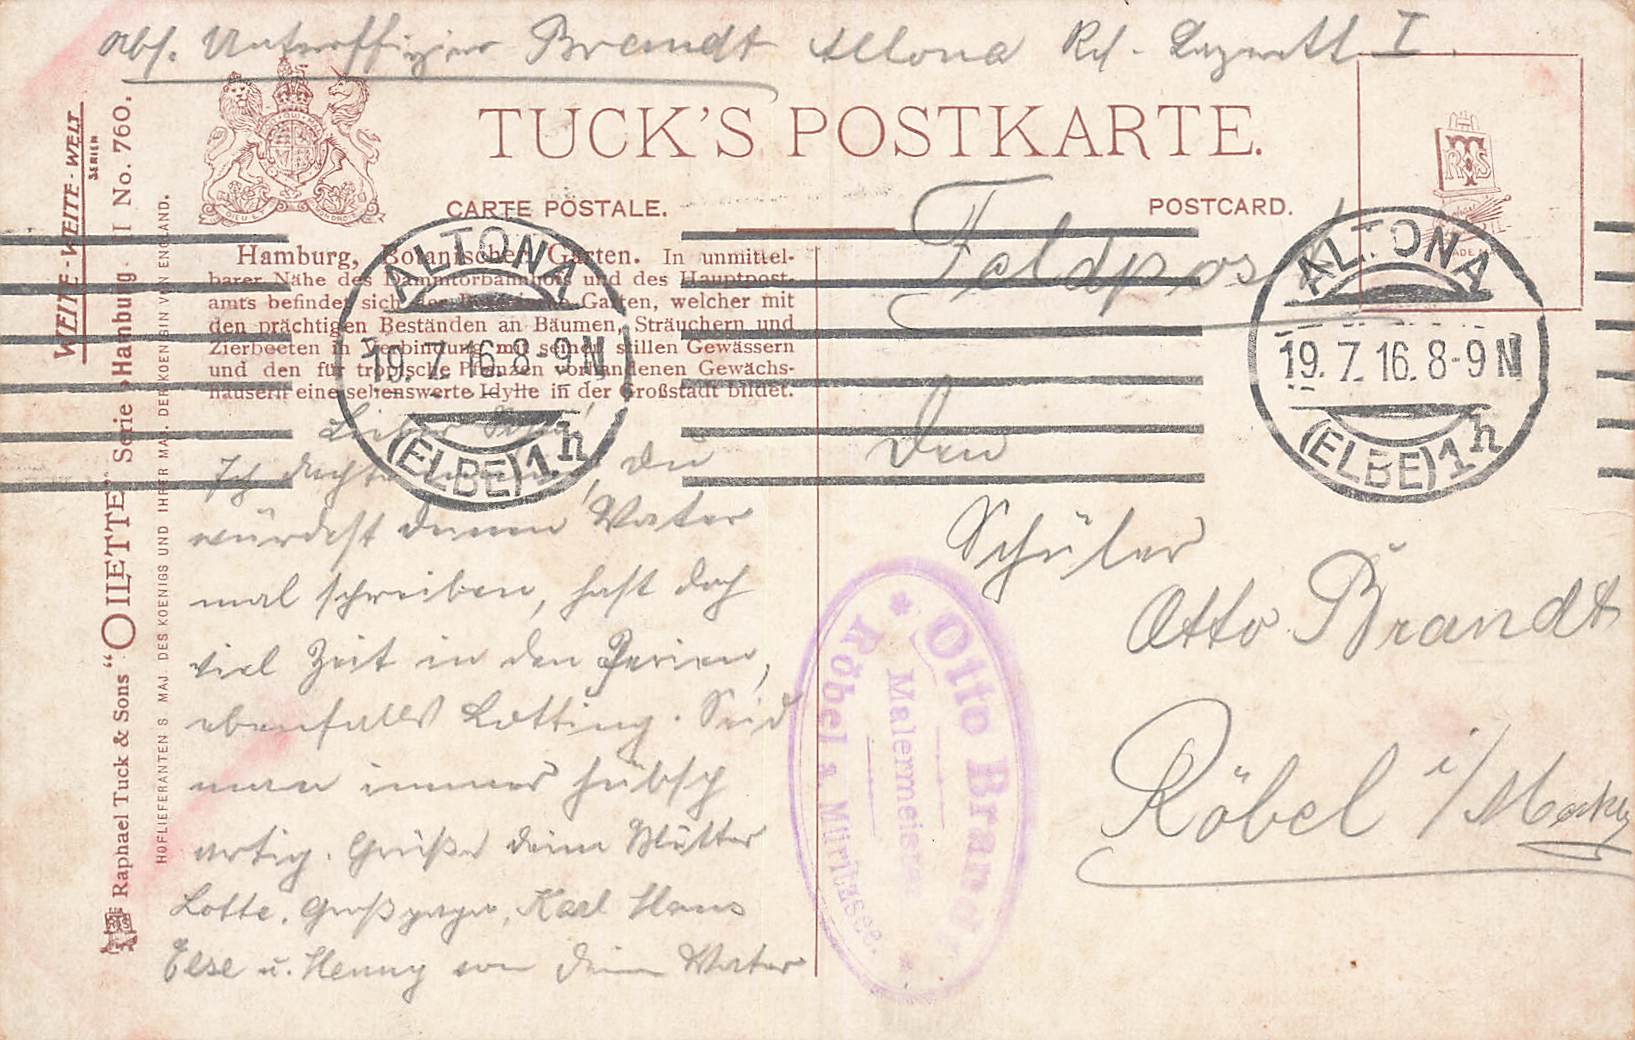 Abs. Unteroffizier Brandt Altona Res. Lazarett I.
TUCK'S POSTKARTE.
CARTE POSTALE.
POSTCARD.
WEITE-WEITE-WELT
SERIEN
Raphael Tuck & Sons "OILETTE" Serie „Hamburg I No. 760.
HOFLIEFERANTEN S. MAJ. DES KOENIGS UND IHRER MAJ. DER KOENIGIN VON ENGLAND.
Hamburg, Botanischer Garten. In unmittel-
barer Nähe des Dammtorbahnhofs und des Hauptpost-
amts befindet sich der Botanische Garten, welcher mit
den prächtigen Beständen an Bäumen, Sträuchern und
Zierbeeten in Verbindung mit seinen stillen Gewässern
und den für tropische Pflanzen vorhandenen Gewächs-
häusern eine sehenswerte Idylle in der Großstadt bildet.
ALTONA
19.7.16.8-9N
(ELBE)1h
ALTONA
19.7.16.8-9N
(ELBE)1h
Feldpost
Lieber
Ich dachte, du
würdest deinem Vater
mal schreiben, hast doch
viel Zeit in den Ferien,
ebenfalls Lotting. Seid
man immer hübsch
artig. Grüße deine Mutter
Lotte, Karl Hans
Else u. Henny von deinem Vater
Den
Schüler
Otto Brandt
Röbel i/Meckl
Otto Brandt
Malermeister
Röbel a. Müritzsee.